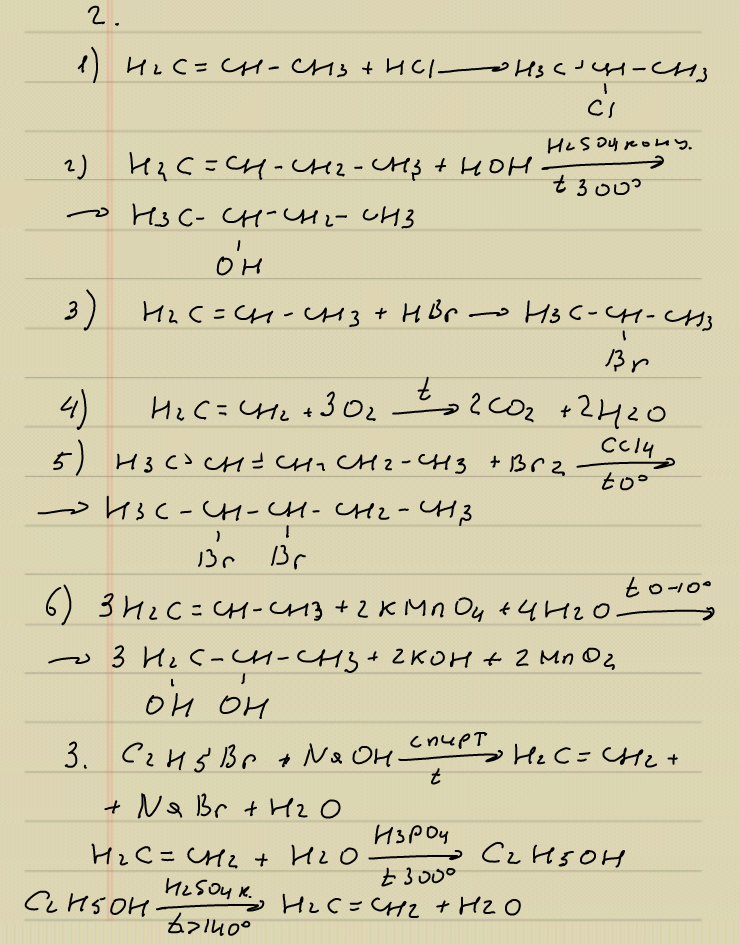 2.
1) H2C = CH - CH3 + HCl → H3C - CH - CH3
Cl
2) H2C = CH - CH2 - CH3 + HOH H2SO4 конц. t 300° →
→ H3C - CH - CH2 - CH3
OH
3) H2C = CH - CH3 + HBr → H3C - CH - CH3
Br
4) H2C = CH2 + 3O2 t → 2CO2 + 2H2O
5) H3C - CH = CH - CH2 - CH3 + Br2 CCl4 t0° →
→ H3C - CH - CH - CH2 - CH3
Br Br
6) 3H2C = CH - CH3 + 2KMnO4 + 4H2O t 0-10° →
→ 3 H2C - CH - CH3 + 2KOH + 2MnO2
OH OH
3. C2H5Br + NaOH спирт t → H2C = CH2 +
+ NaBr + H2O
H2C = CH2 + H2O H3PO4 t 300° → C2H5OH
C2H5OH H2SO4 к. t>140° → H2C = CH2 + H2O